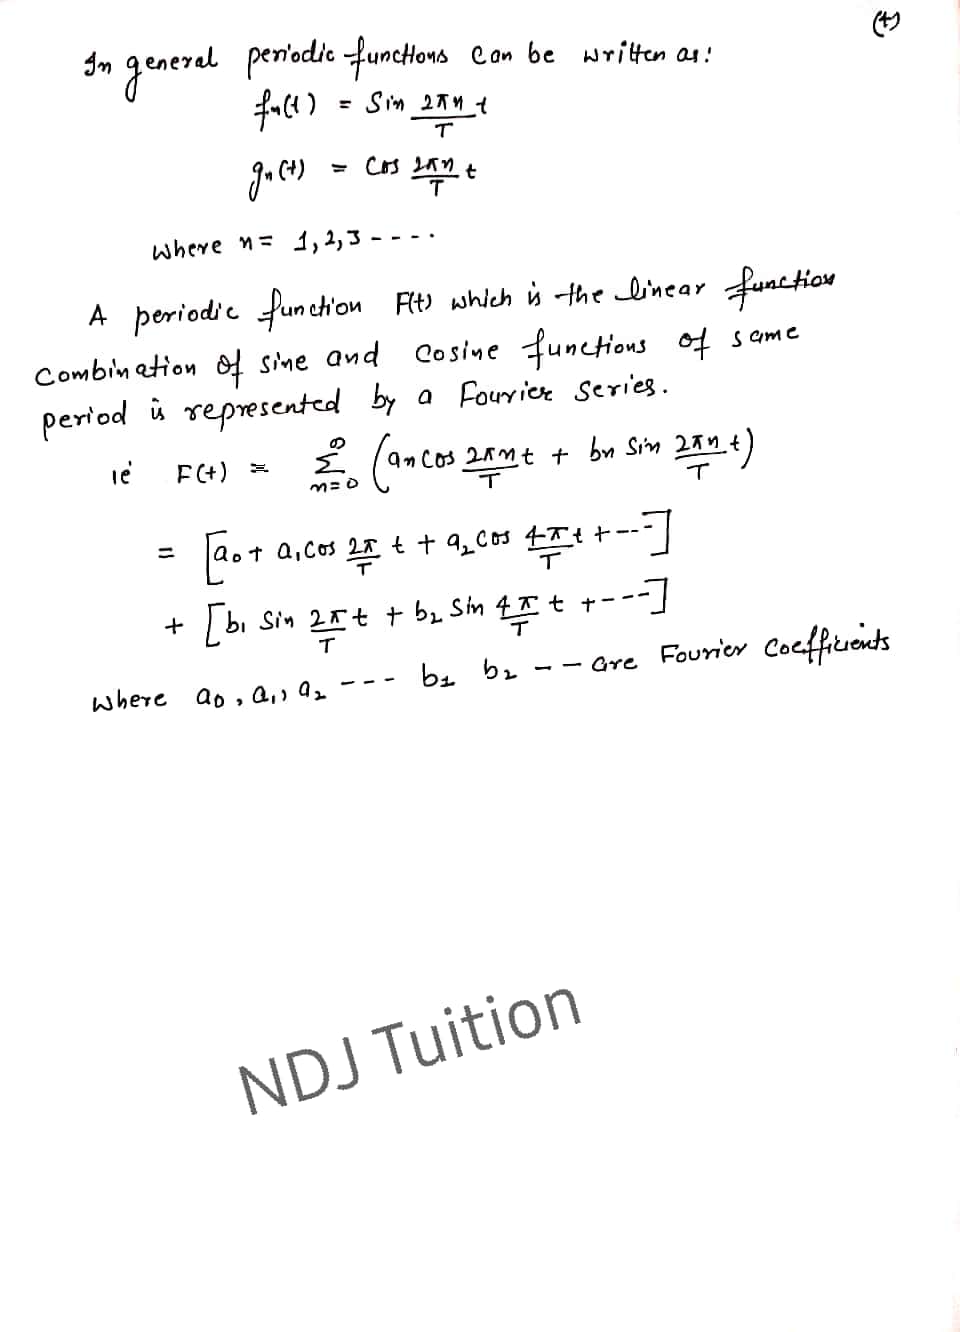 (4)
In general periodic functions can be written as:
fn(t) = Sin 2πn/T t
gn(t) = Cos 2πn/T t
where n = 1,2,3 ----.
A periodic function F(t) which is the linear function
combination of sine and cosine functions of same
period is represented by a Fourier Series.
ie F(t) = ∑_{n=0}^{∞} (an cos 2πn/T t + bn Sin 2πn/T t)
= [a₀ + a₁cos 2π/T t + a₂cos 4π/T t + ---]
+ [b₁ Sin 2π/T t + b₂ Sin 4π/T t + ---]
where a₀, a₁, a₂ --- b₁ b₂ -- are Fourier Coefficients
NDJ Tuition